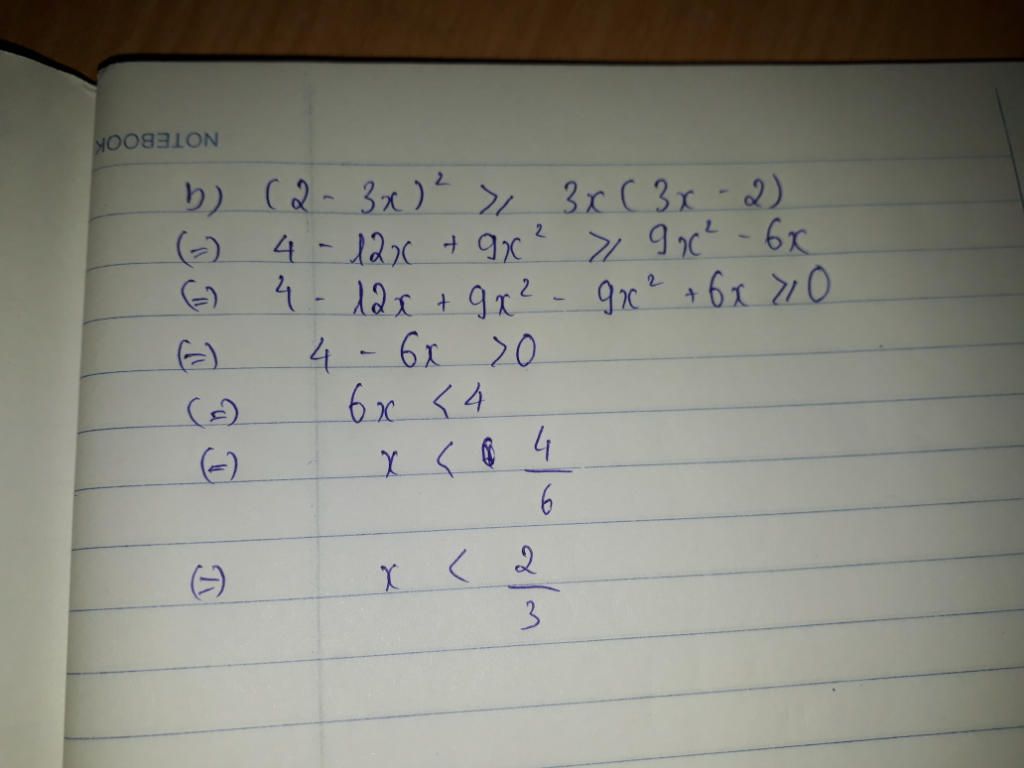 NOTEBOOK
b) (2 - 3x)² ⩾ 3x(3x - 2)
(=) 4 - 12x + 9x² ⩾ 9x² - 6x
(=) 4 - 12x + 9x² - 9x² + 6x ⩾ 0
(=) 4 - 6x > 0
(=) 6x < 4
(=) x < 4/6
(=) x < 2/3